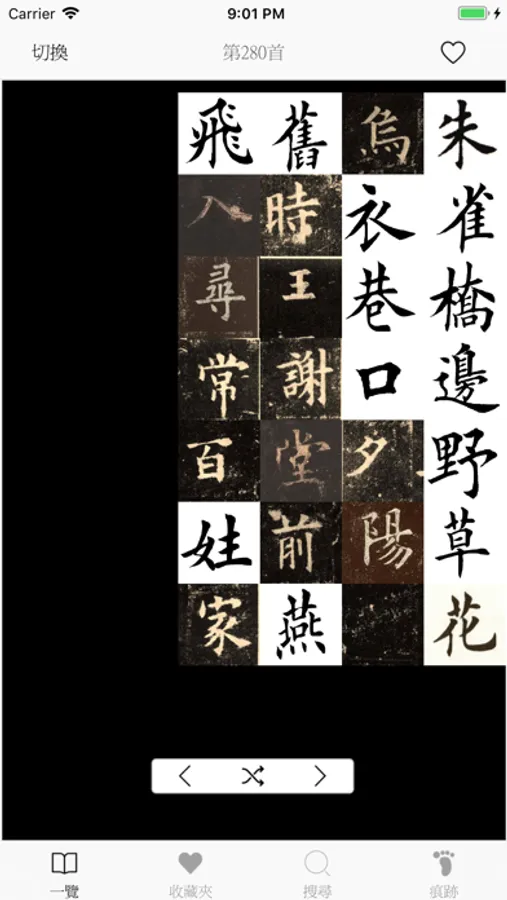 Carrier 9:01 PM
切換 第280首
朱雀橋邊野草花
烏衣巷口夕陽
舊時王謝堂前燕
飛入尋常百姓家
一覽 收藏夾 搜尋 痕跡